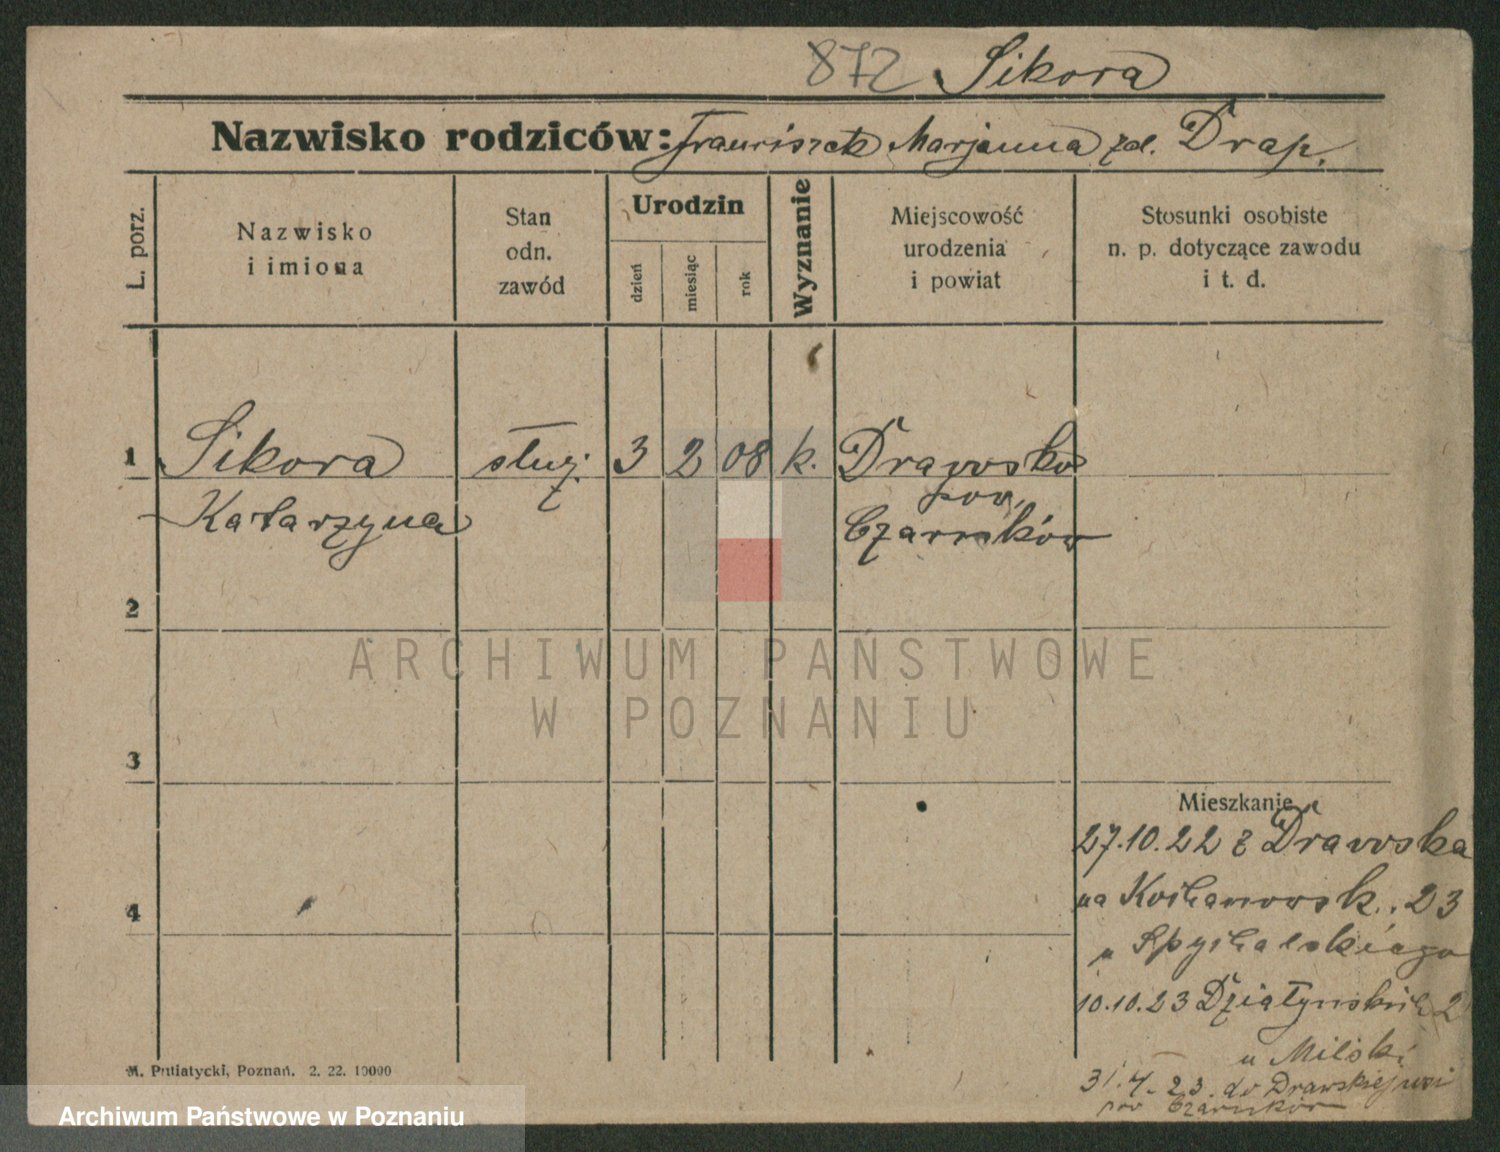 872 Sikora
Nazwisko rodziców: Franciszek Marjanna zd. Drap.
L. porz.
Nazwisko
i imiona
Stan
odn.
zawód
Urodzin
dzień
miesiąc
rok
Wyznanie
Miejscowość
urodzenia
i powiat
Stosunki osobiste
n. p. dotyczące zawodu
i t. d.
1 Sikora służ. 3 2 08 k. Drawsko
pow.
Katarzyna Czarnków
2
ARCHIWUM PAŃSTWOWE
W POZNANIU
3
Mieszkanie
27.10.22 z Drawska
na Kochanowsk. 23
4
u Spychalskiego
10.10.23 Działyńskich 2
u Milski
M. Putiatycki, Poznań. 2. 22. 10000
31.  23. do Drawskiej wsi
pow Czarnków
Archiwum Państwowe w Poznaniu